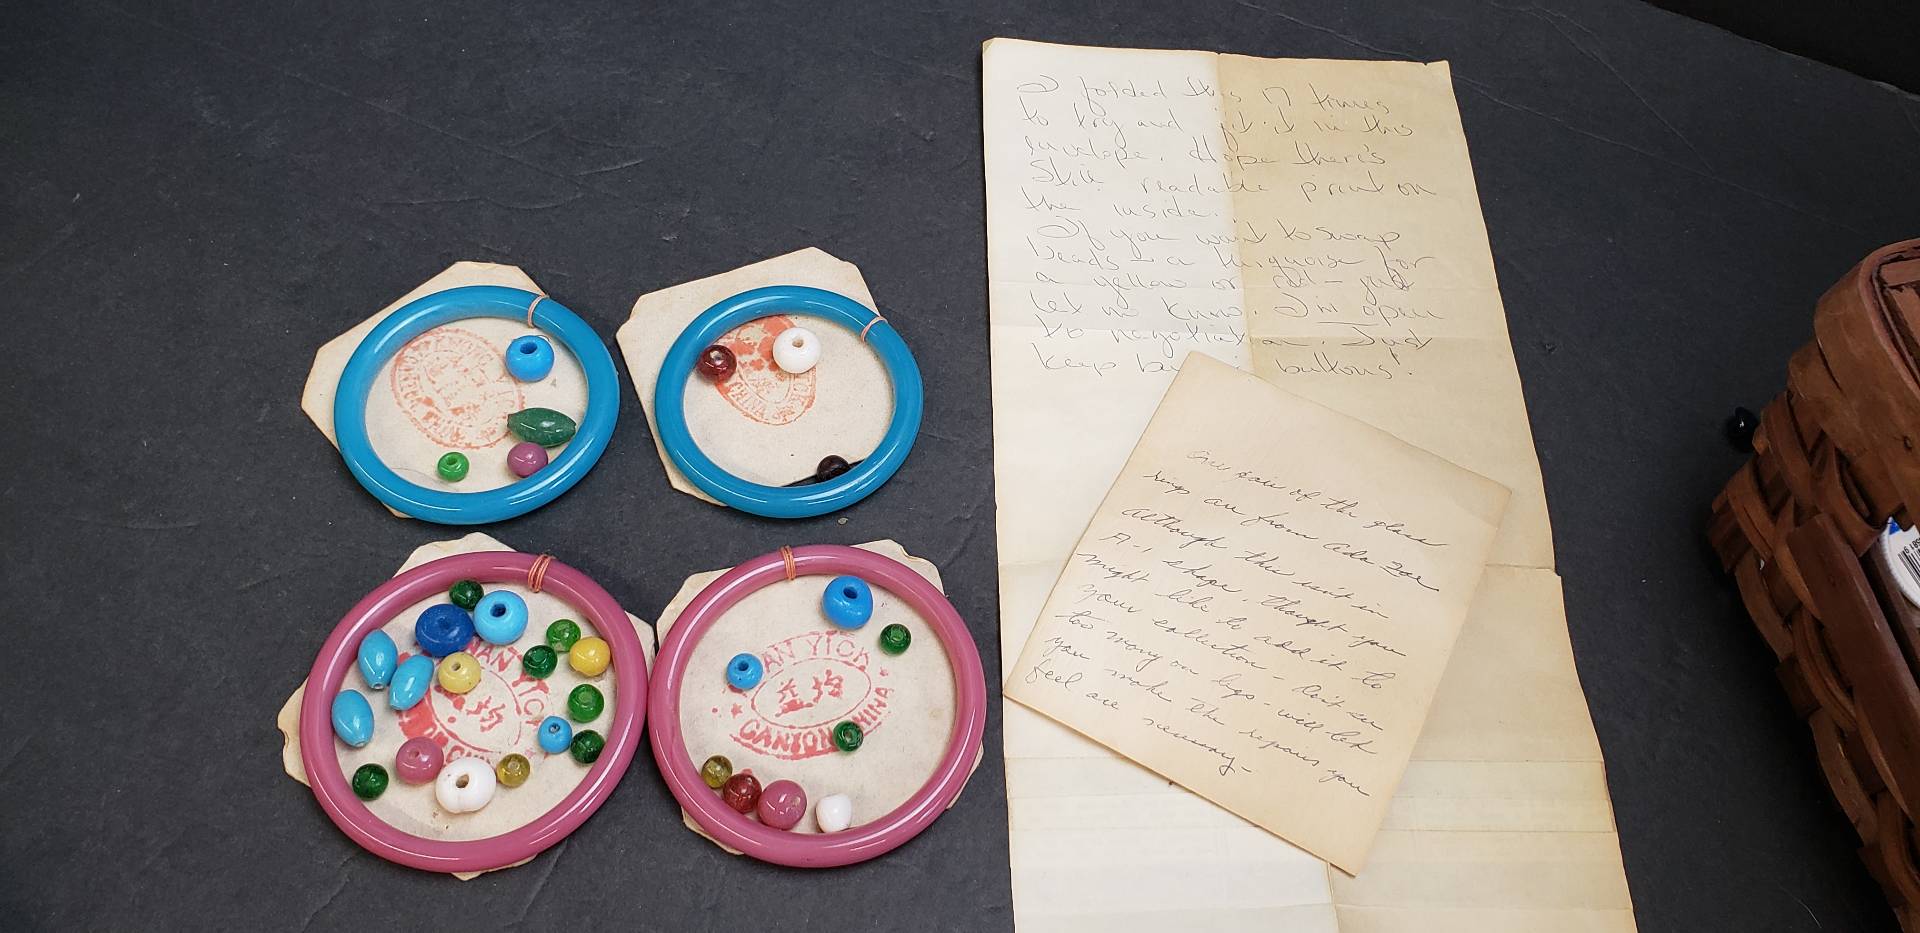 NAN YICK
CANTON CHINA
I folded this 17 times
to try and fit it in this
envelope. Hope there's
still readable print on
the inside.
If you want to swap
beads - a turquoise for
a yellow or red - just
let me know. I'm open
to negotiation. Just
keep buttons!
One pair of the glass
rings are from Ada Zoe
Although this isn't in
A-1 shape, thought you
might like to add it to
your collection - Don't see
too many on legs - will let
you make the repairs you
feel are necessary -